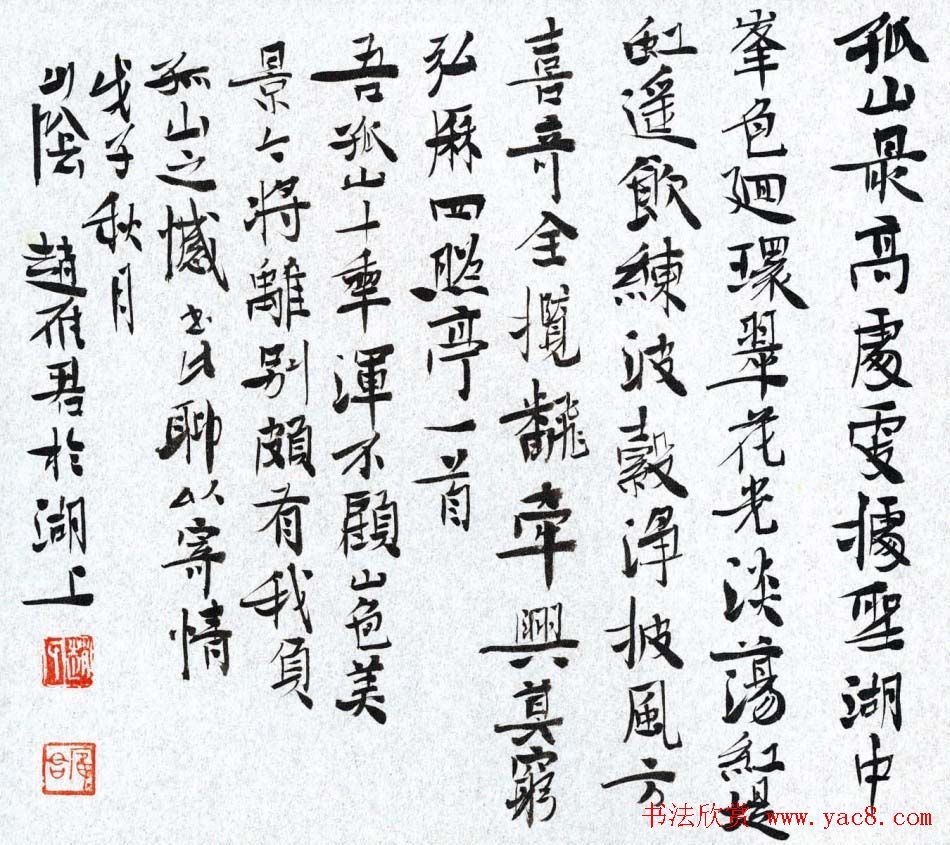 孤山最高處雯據聖湖中
峯色廻環翠花光淡蕩紅堤
虹遥飲練波縠淨披風方
喜奇全攬飜牽興莫窮
弘厤四照亭一首
吾孤山十年渾不顧山色美
景今將離别頗有我負
孤山之憾書此聊以寄情
戊子秋月
山陰趙雁君於湖上
书法欣赏www.yac8.com